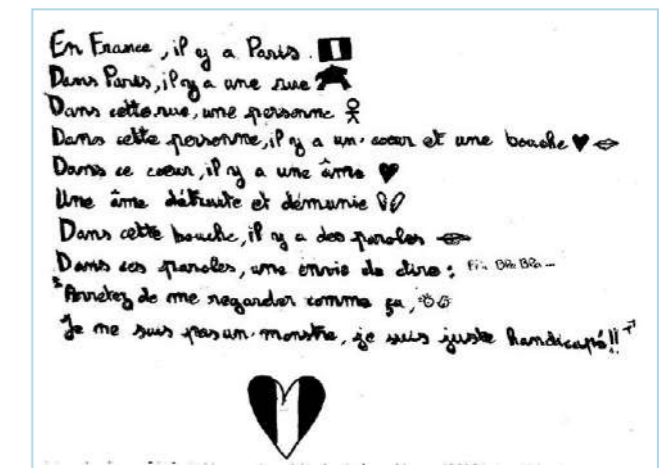 En France, il y a Paris.
Dans Paris, il y a une rue
Dans cette rue, une personne
Dans cette personne, il y a un coeur et une bouche
Dans ce coeur, il y a une âme
Une âme détruite et démunie
Dans cette bouche, il y a des paroles
Dans ces paroles, une envie de dire :
"Arretez de me regarder comme ça,
Je me suis pas un monstre, je suis juste handicapé!!"